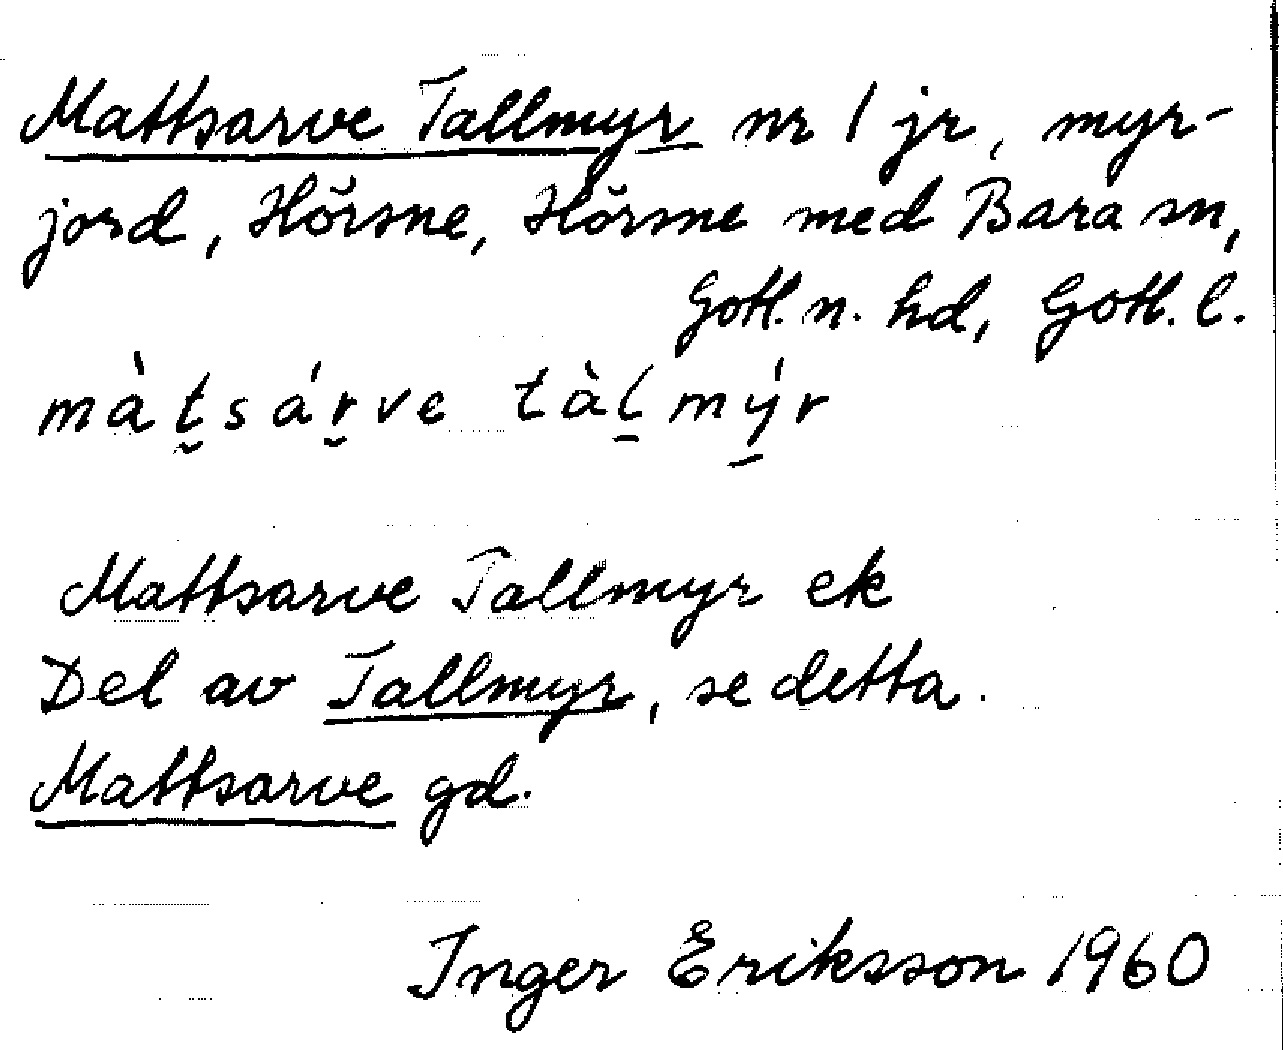 Mattsarve Tallmyr nr 1 jr, myr-
jord, Hörsne, Hörsne med Bara sn,
Gotl. n. hd, Gotl. l.
màt̬sár̬ve tàl̠mý̠r
Mattsarve Tallmyr ek
Del av Tallmyr, se detta.
Mattsarve gd.
Inger Eriksson 1960